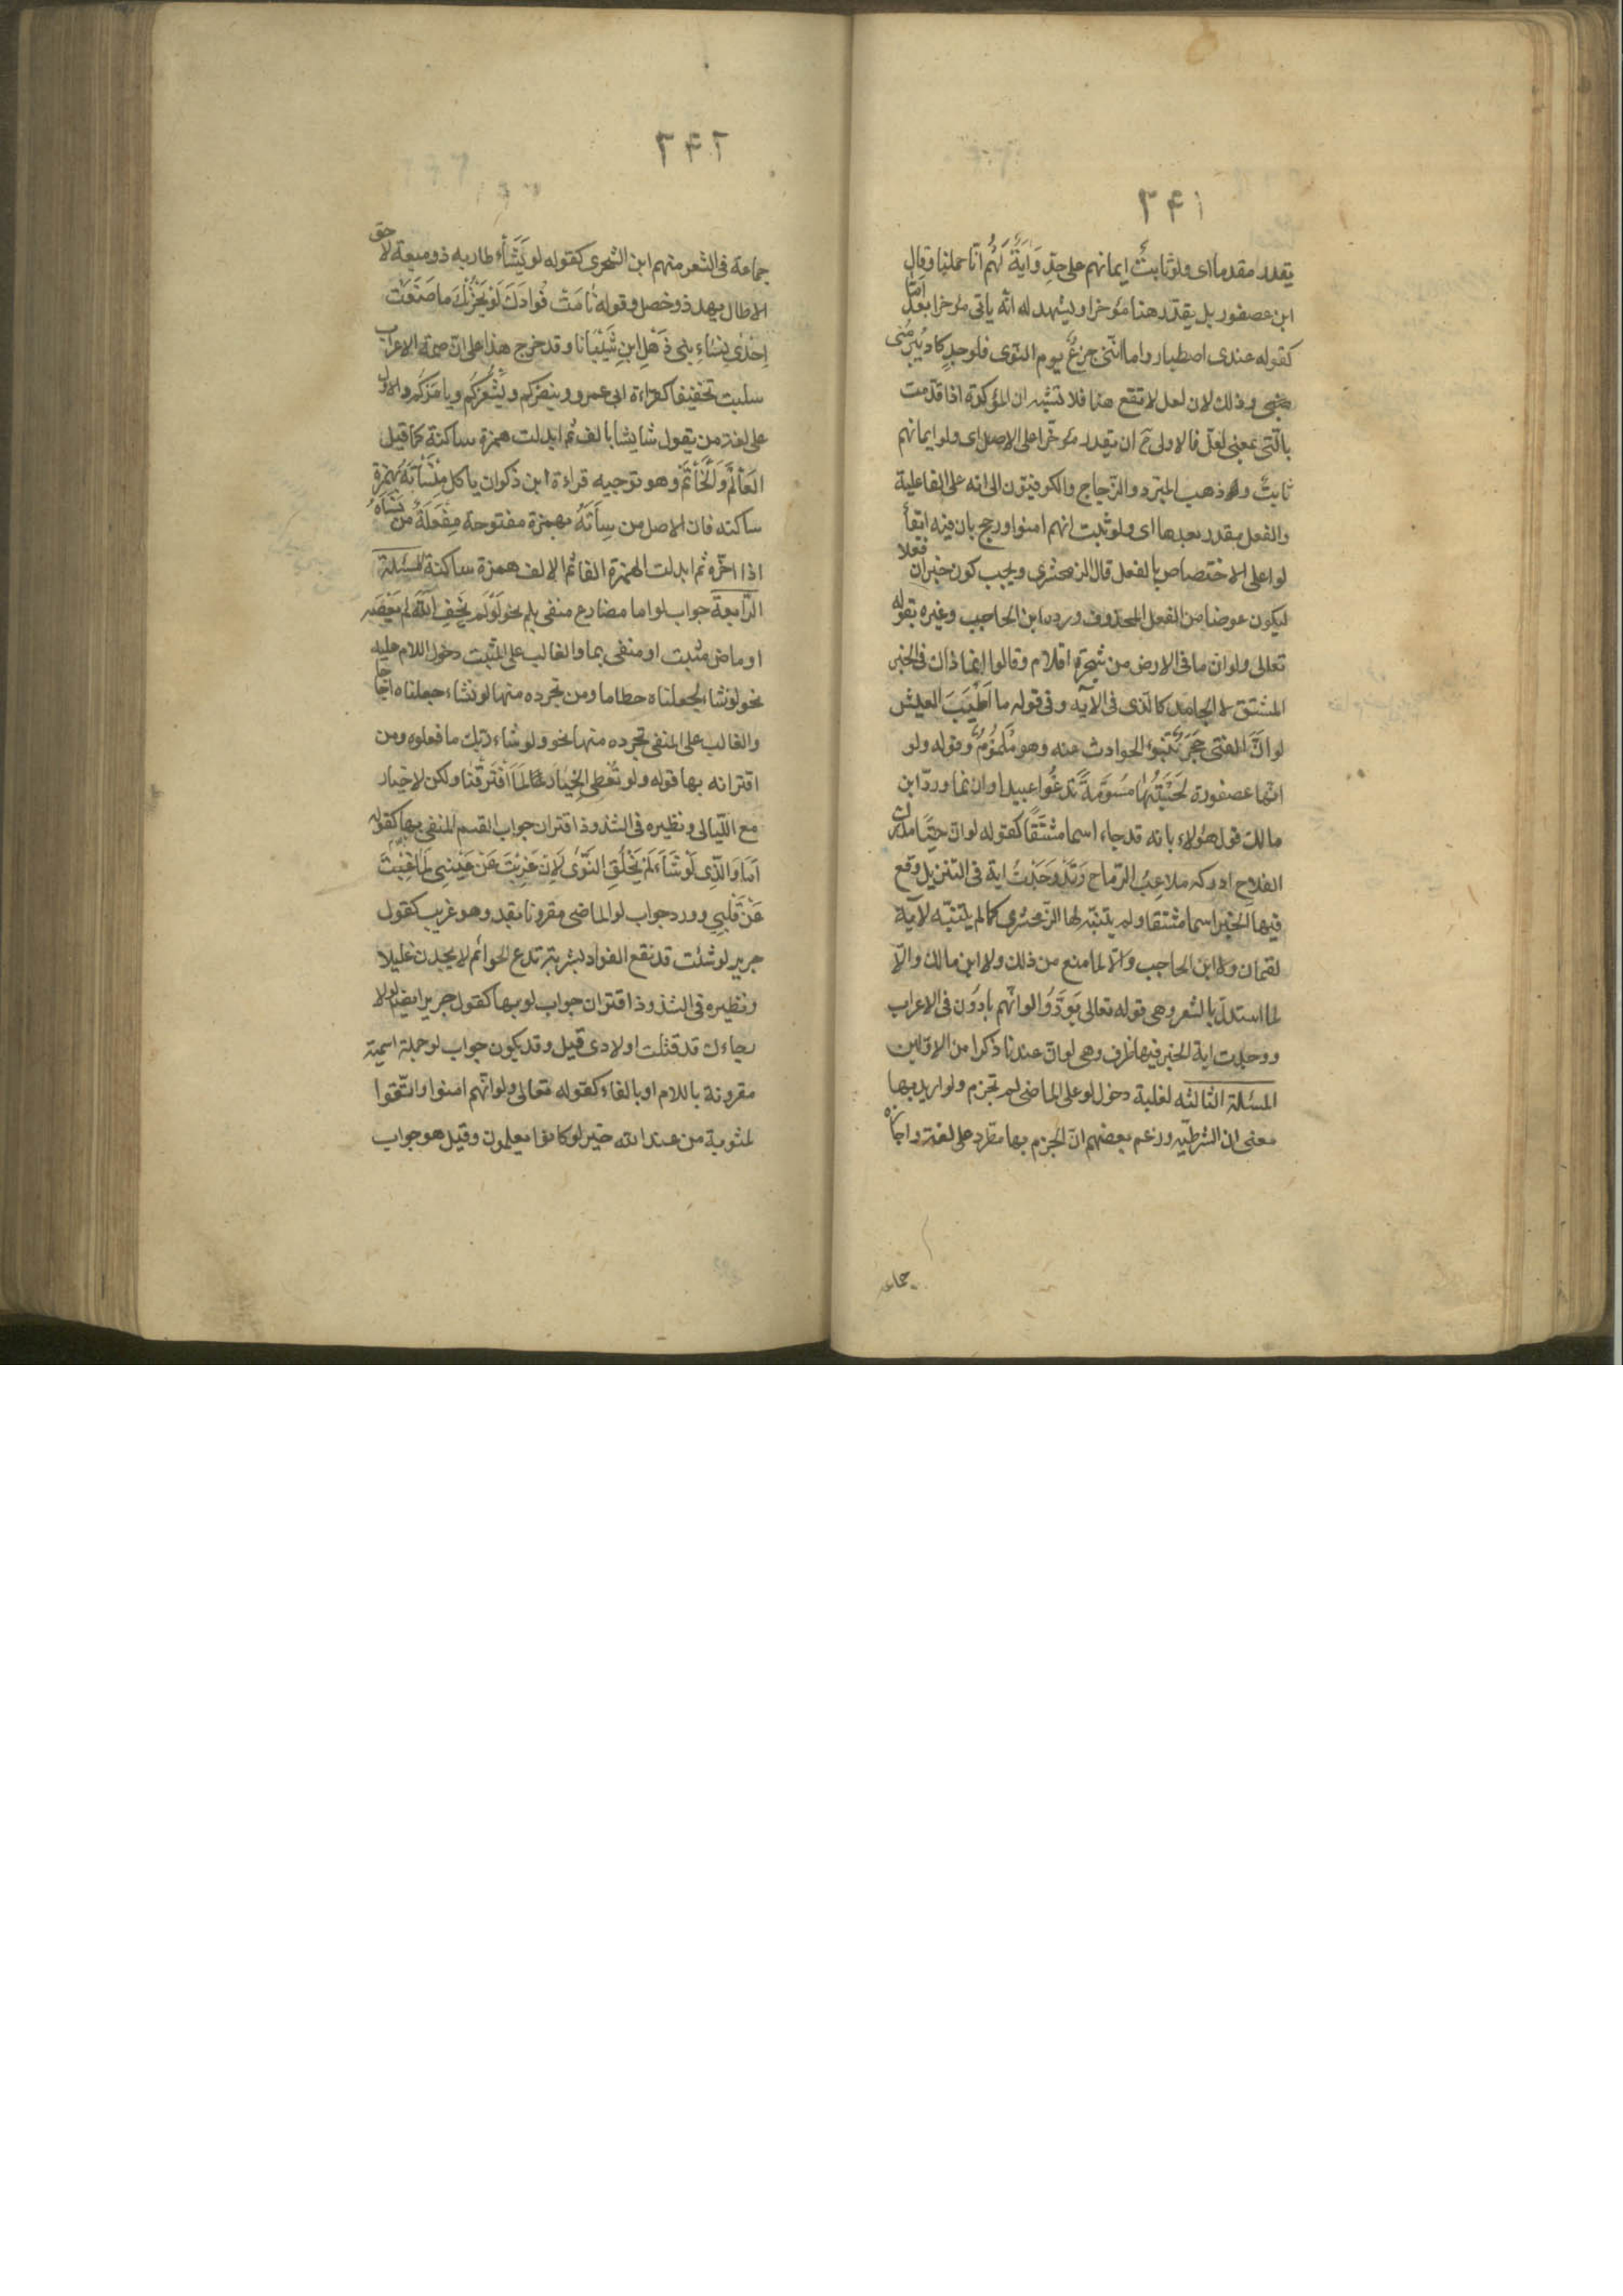 ٢٤١
يقدر مقدما اى ولو ثابت ايمانهم على حدِّ وَآيَةٌ لَهُم انّا حملنا وقال
ابن عصفور بل يقدّر هنا مؤخرا ويشهد له انّه ياتى مؤخرا بعد امّا
كقوله عندى اصطبار واما انّنى جزعٌ يوم النّوى فلوجدٍ كاد يُبرٖينى
وذلك لان لعل لا تقع هنا فلا تشبه ان المؤكّدة اذا قدّمت
بالّتى بمعنى لعلّ فالاولى ح ان يقدر مؤخّرا على الاصل اى ولو ايمانهم
ثابتٌ وذهب المبرد والزّجاج والكوفيّون الى انه على الفاعلية
والفعل مقدر بعدها اى ولو ثبت انهم امنوا ورجح بان فيه ابقاء
لو على الاختصاص بالفعل قال الزمخشرى ويجب كون خبر ان فعلا
ليكون عوضا من الفعل المحذوف ورده ابن الحاجب وغيره بقوله
تعالى ولو ان ما فى الارض من شجرة اقلام وقالوا انما ذاك فى الخبر
المشتق لا الجامد كالّذى فى الآيه وفى قوله ما اَطْيَبَ العيش
لو انَّ الفتى حجرٌ تنبو الحوادث عنه وهو ملمومٌ وقوله ولو
انّها عصفورة لَحَسِبْتُهٰا مُسَوَّمَةً تَدْعُوا عبيدا وان نما وردّ ابن
مالك قول هؤلاء بانه قد جاء اسما مشتقًا كقوله لو انّ حيًّا مدرك
الفلاح ادركه ملاعِبُ الرّماح وَقَدْ وَجَدْتُ اية فى التنزيل وقع
فيها الخبر اسما مشتقا ولم يتنبّه لها الزّمخشرى كما لم يتنبّه لآية
لقمان ولا ابن الحاجب والّا لما منع من ذلك ولا ابن مالك والّا
لما استدلّ بالشعر وهى قوله تعالى يَوَدُّوا لو انّهم بادُون فى الاعراب
ووجدت اية الخبر فيها ظرف وهى لو انّ عندنا ذكرا من الاوّلين
المسئلة الثالثه لغلبة دخول لو على الماضى لم تجزم ولو اريد بها
معنى ان الشرطيّه وزعم بعضهم انّ الجزم بها مطّرد على لغة واجازه
جماعه
٢٤٢
جماعة فى الشعر منهم ابن الشجرى كقوله لو يَشَأْ طار به ذو ميعة لاحق
الاطال نهد ذو خصل وقوله تٰامَتْ فُوادَكَ لَوْ يَحْزُنْكَ ما صَنَعَتْ
اِحْدٰى نِسٰاءِ بنى ذُهْلِ ابنِ شَيْبٰانا وقد خرج هذا على انّ ضمّة الاعراب
سلبت تخفيفا كقراءة ابى عمرو وينصركم ويُشْعِرْكُم ويامُرْكم والاول
على لغة من يقول شا يشا بالف ثم ابدلت همزة ساكنة كما قيل
العَأْلَم وَالْخَأْتَم وهو توجيه قراءة ابن ذكوان ياكل مِنْسَأْتَهُ بهمزة
ساكنه فان الاصل مِنْسأَتَهُ بهمزة مفتوحة مِفْعَلَةٌ من نَسَأَهُ
اذا اخّره ثم ابدلت الهمزة الفا ثم الالف همزة ساكنة المسئلة
الرّابعة جواب لو اما مضارع منفى بلم نحو لَوْلَمْ يَخَفِ اللّٰهَ لم يَعْصِه
او ماض مثبت او منفى بما والغالب على المثبت دخول اللام عليه
نحو لو نشاء لجعلناه حطاما ومن تجرده منها لو نشاء جعلناه اجاجا
والغالب على المنفى تجرده منها نحو ولو شاء ربّك ما فعلوه ومن
اقترانه بها قوله ولو نُعْطَى الخِيٰارَ لَمَا افْتَرَقْنٰا ولكن لا خيار
مع اللّيالى ونظيره فى الشذوذ اقتران جواب القسم المنفى بما بها كقوله
اَمٰا وَالَّذِى لَوْ شَآءَ لَمْ يَخْلُقِ النَّوٰى لَإِنْ غِبْتَ عَنْ عَيْنِى لَمٰا غِبْتَ
عَنْ قَلْبِي وورد جواب لو الماضى مقرونا بقد وهو غريب كقول
جرير لو شئت قد نقع الفواد بشربة تدع الحوائم لا يجدن غليلا
ونظيره فى الشذوذ اقتران جواب لولا بها كقول جرير ايضا لولا
رجاءك قد قتّلت اولادى قيل وقد يكون جواب لو جملة اسميّة
مقرونة باللام او بالفاء كقوله تعالى ولو انّهم امنوا واتّقوا
لمثوبة من عند الله خير لو كانوا يعلمون وقيل هو جواب